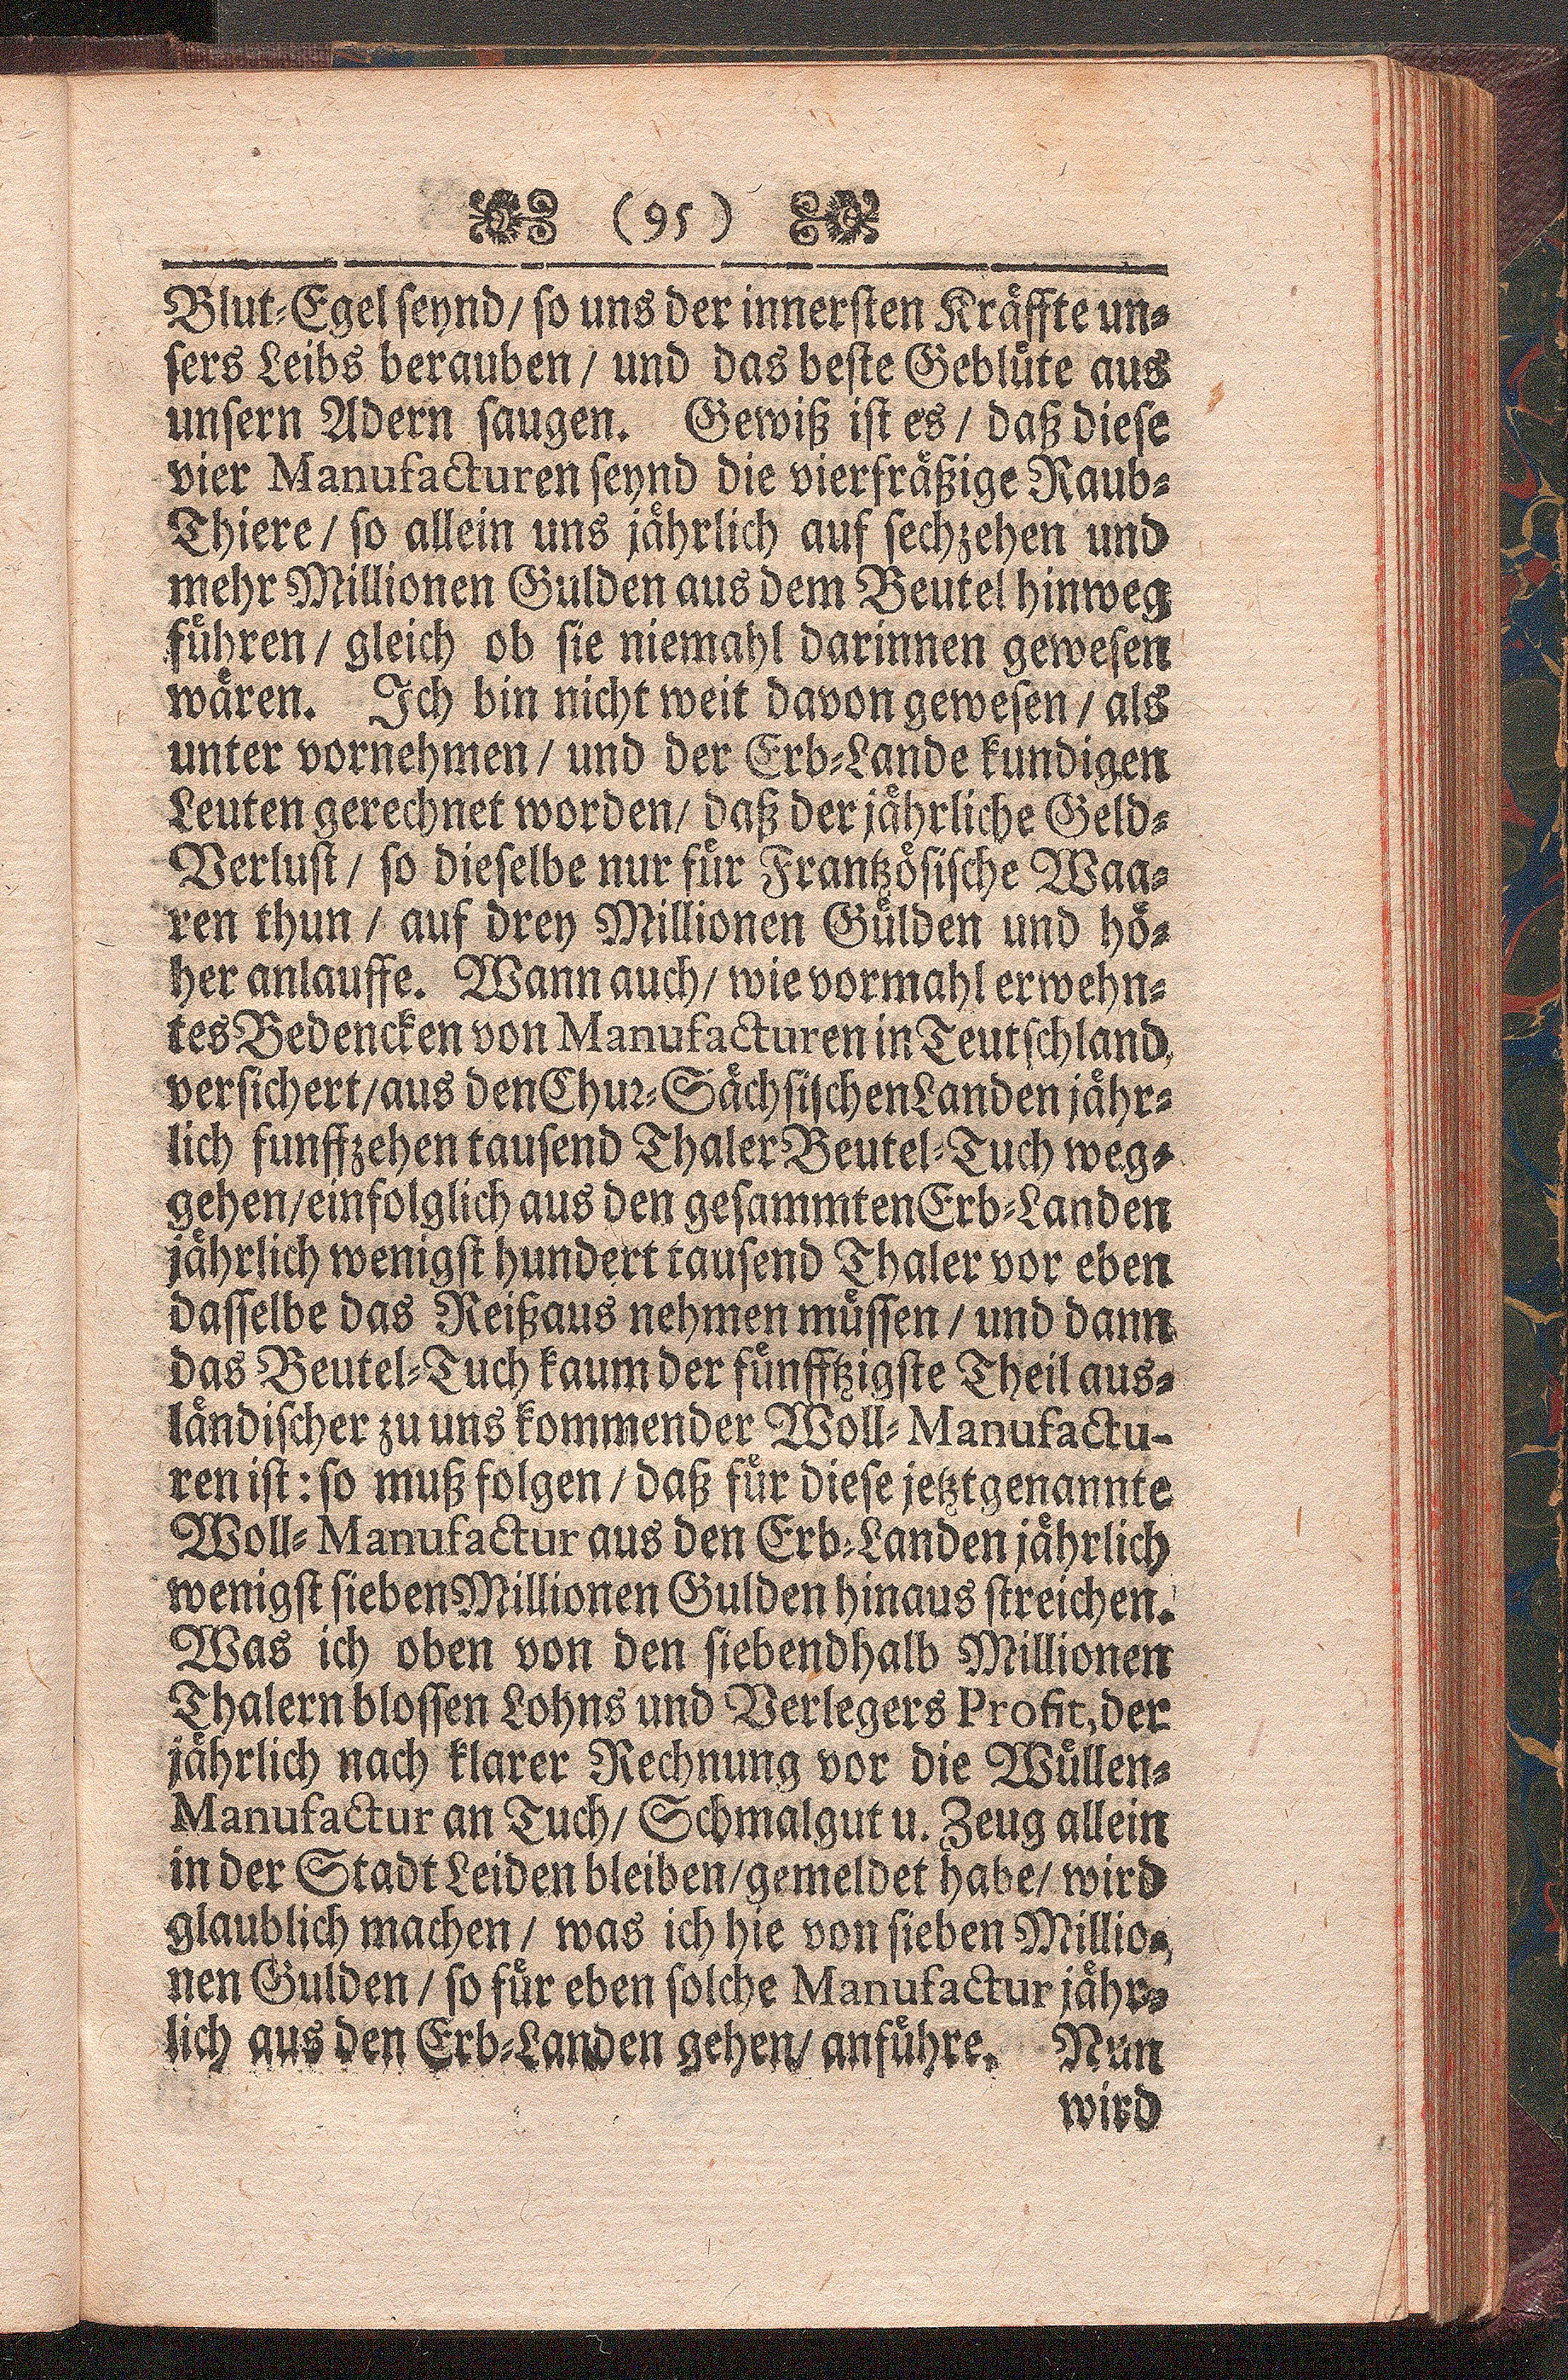 (95)
Blut-Egel seynd/ so uns der innersten Kräffte un-
sers Leibs berauben/ und das beste Geblüte aus
unsern Adern saugen. Gewiß ist es/ daß diese
vier Manufacturen seynd die vierfräßige Raub-
Thiere/ so allein uns jährlich auf sechzehen und
mehr Millionen Gulden aus dem Beutel hinweg
führen/ gleich ob sie niemahl darinnen gewesen
wären. Ich bin nicht weit davon gewesen/ als
unter vornehmen/ und der Erb-Lande kundigen
Leuten gerechnet worden/ daß der jährliche Geld-
Verlust/ so dieselbe nur für Frantzösische Waa-
ren thun/ auf drey Millionen Gülden und hö-
her anlauffe. Wann auch/ wie vormahl erwehn-
tes Bedencken von Manufacturen in Teutschland,
versichert/ aus den Chur-Sächsischen Landen jähr-
lich funffzehen tausend Thaler Beutel-Tuch weg-
gehen/ einfolglich aus den gesammten Erb-Landen
jährlich wenigst hundert tausend Thaler vor eben
dasselbe das Reißaus nehmen müssen/ und dann
das Beutel-Tuch kaum der fünfftzigste Theil aus-
ländischer zu uns kommender Woll-Manufactu-
ren ist: so muß folgen/ daß für diese jetztgenannte
Woll-Manufactur aus den Erb-Landen jährlich
wenigst sieben Millionen Gulden hinaus streichen.
Was ich oben von den siebendhalb Millionen
Thalern blossen Lohns und Verlegers Profit, der
jährlich nach klarer Rechnung vor die Wüllen-
Manufactur an Tuch/ Schmalgut u. Zeug allein
in der Stadt Leiden bleiben/ gemeldet habe/ wird
glaublich machen/ was ich hie von sieben Millio-
nen Gulden/ so für eben solche Manufactur jähr-
lich aus den Erb-Landen gehen/ anführe. Nun
wird